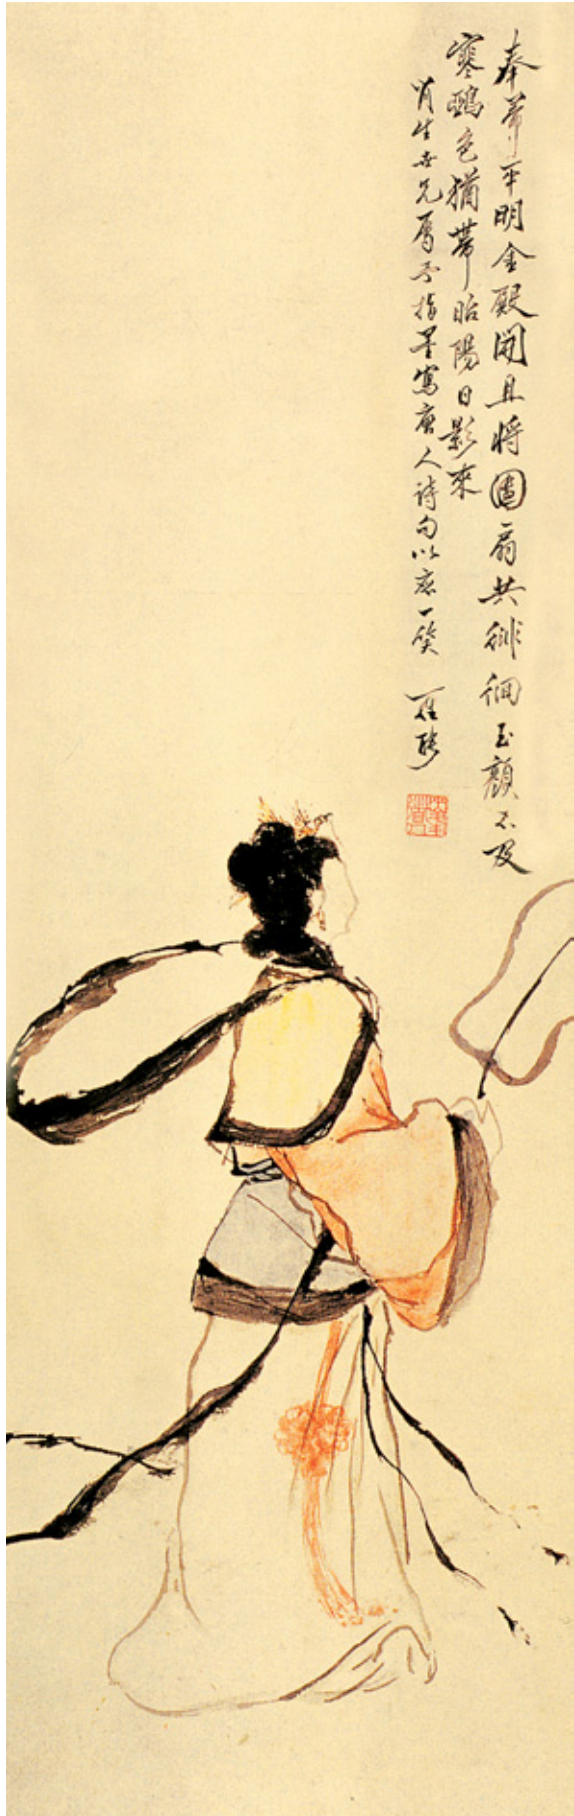 奉帚平明金殿開且將團扇共徘徊玉顏不及
寒鵶色猶帶昭陽日影來
肖生世兄屬予指墨寫唐人詩句以一笑 羅聘